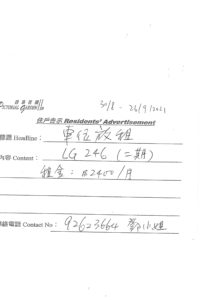 30/8 - 26/9/2021
碧濤花園
PICTORIAL GARDEN II
住戶告示 Residents' Advertisement
標題 Headline: 車位放租
內容 Content: LG 246 (二期)
租金: $2400/月
聯絡電話 Contact No: 92623664 鄧小姐